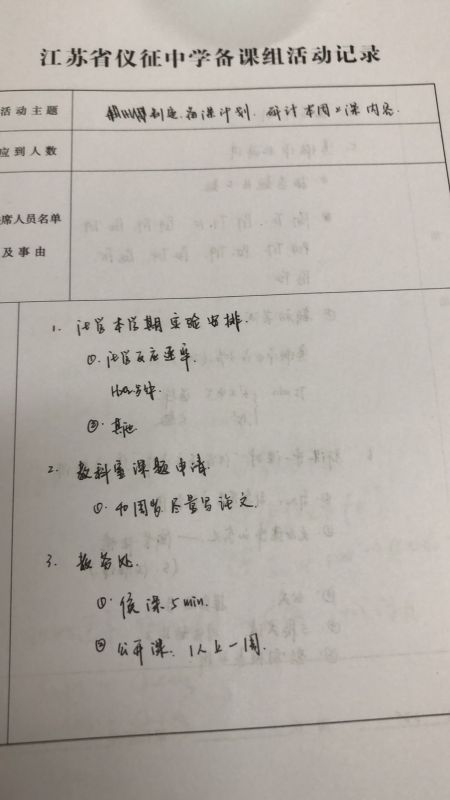 江苏省仪征中学备课组活动记录
活动主题 制定备课计划. 研讨本周上课内容.
应到人数
席人员名单
及事由
1. 沈莹本学期实验安排.
①. 化学反应速率.
②. 其他
2. 教科室课题申请.
①. 40周岁尽量写论文.
3. 教务处.
①. 候课5min.
② 公开课: 1人上一周.